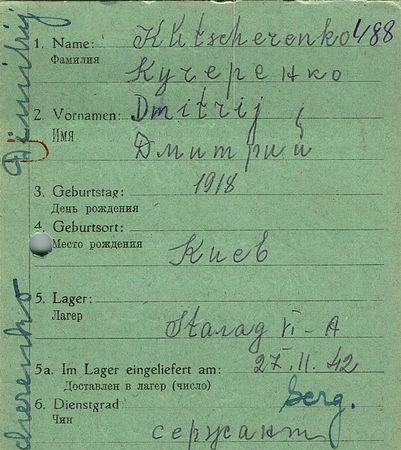 1. Name: Kutscherenko 488
Фамилия
Кучеренко
2. Vornamen: Dmitrij
Имя
Дмитрий
3. Geburtstag: 1918
День рождения
4. Geburtsort:
Место рождения
Киев
5. Lager:
Лагерь
Сталаг VI - A
5a. Im Lager eingeliefert am: 27.11.42
Доставлен в лагерь (число)
6. Dienstgrad serg.
Чин
сержант
cherenko Dimitrij